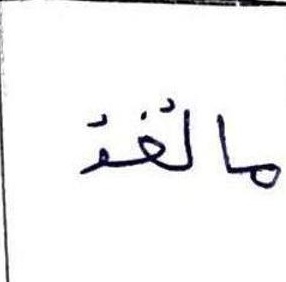 مالُغدُ